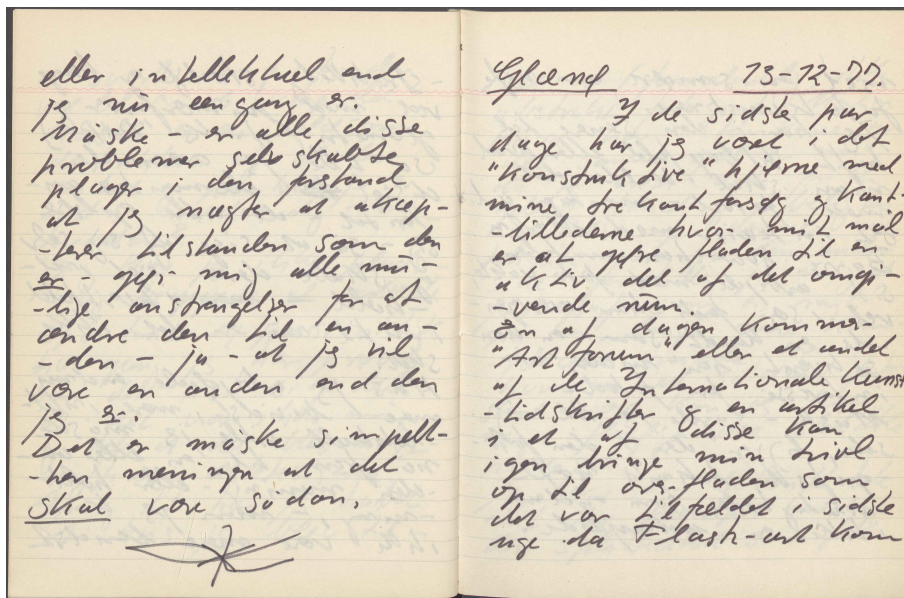 eller intellektuel end
jeg nu eengang er.
Måske - er alle disse
problemer selvskabte
plager i den forstand
at jeg nægter at akcep-
-tere tilstanden som den
er - gør mig alle mu-
-lige anstrengelser for at
ændre den til en an-
-den - ja - at jeg vil
være en anden end den
jeg er.
Det er måske simpelt-
-hen meningen at det
skal være sådan.
Glænø 13-12-77.
I de sidste par
dage har jeg været i det
"konstruktive" hjørne med
mine trekantforsøg og kant-
-billederne hvor mit mål
er at gøre fladen til en
aktiv del af det omgi-
-vende rum.
En af dagen kommer
"Art forum" eller et andet
af de Internationale kunst
-tidskrifter og en artikel
i et af disse kan
igen bringe min tvivl
op til overfladen som
det var tilfældet i sidste
uge da Flash-art kom